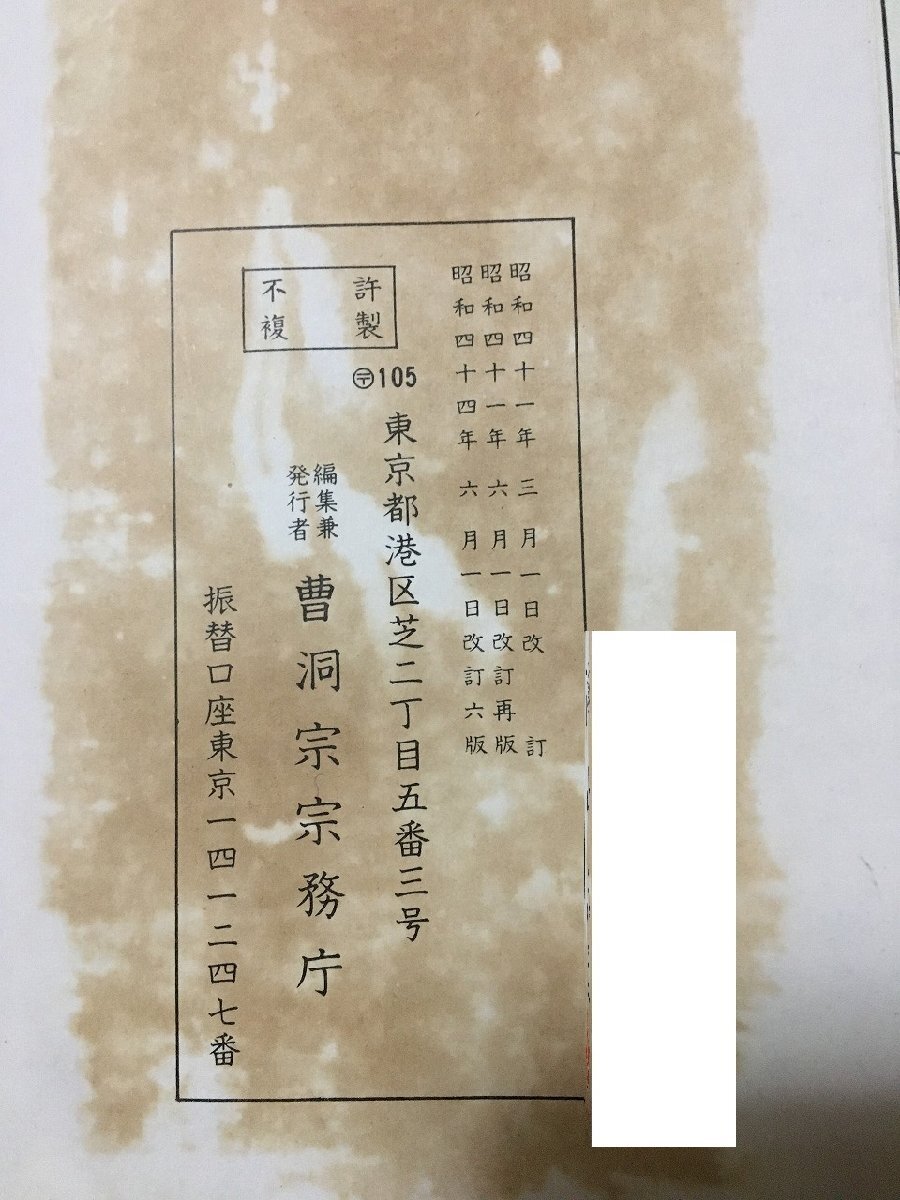 昭和四十一年三月一日改訂
昭和四十一年六月一日改訂再版
昭和四十四年六月一日改訂六版
許製
不複
〒105
東京都港区芝二丁目五番三号
編集兼
発行者
曹洞宗宗務庁
振替口座東京一四一二四七番